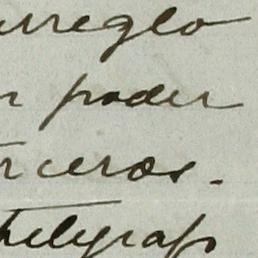 arreglo
n poder
rceros.
telegraf